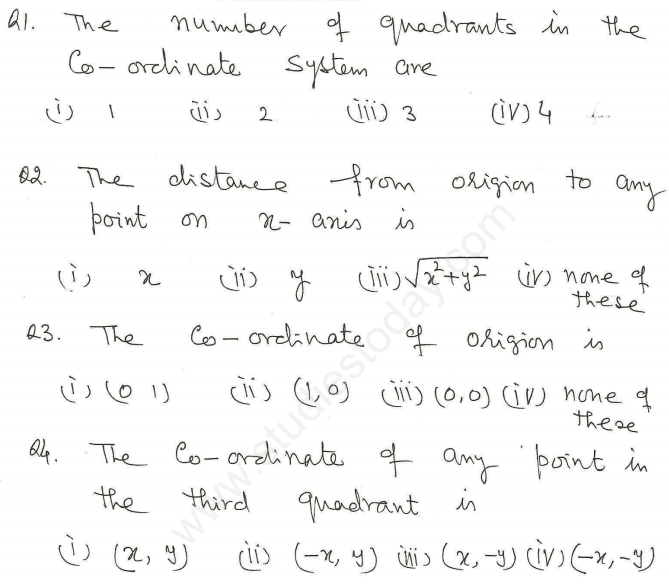 Q1. The nuumber of quadrants in the
Co-ordinate system are
(i) 1 (ii) 2 (iii) 3 (iv) 4
Q2. The distance from origion to any
point on x-axis is
(i) x (ii) y (iii) √x²+y² (iv) none of
these
Q3. The Co-ordinate of origion is
(i) (0 1) (ii) (1,0) (iii) (0,0) (iv) none of
these
Q4. The Co-ordinate of any point in
the third quadrant is
(i) (x, y) (ii) (-x, y) (iii) (x,-y) (iv) (-x,-y)
www.studiestoday.com